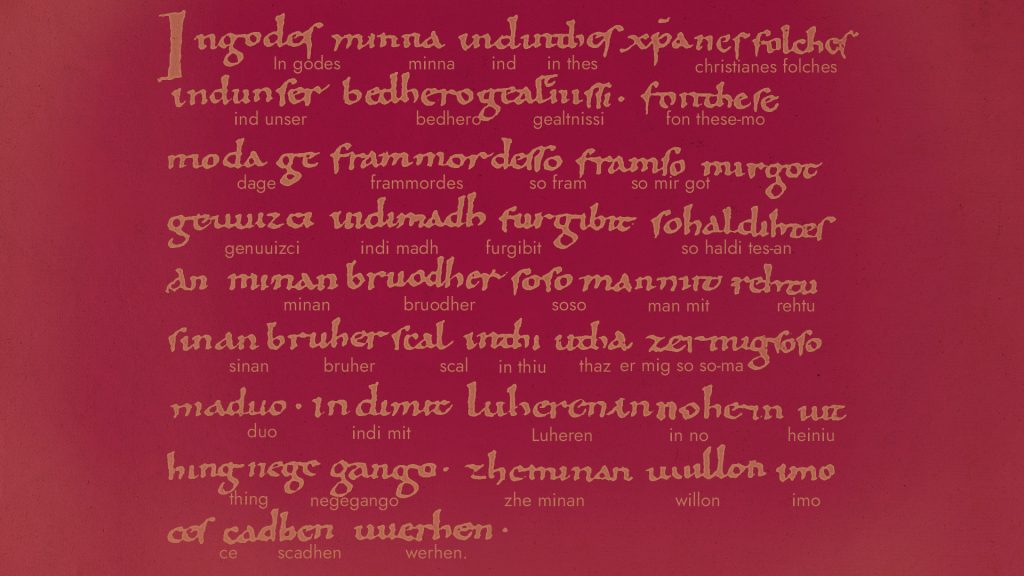 In godes minna induntthes xp̄anes folches
In godes minna ind in thes christianes folches
indunser bedhero gealtnissi · fonthese
ind unser bedhero gealtnissi fon these-mo
moda ge frammordesso framso mirgot
dage frammordes so fram so mir got
geuuizci indimadh furgibit sohaldihtes
genuuizci indi madh furgibit so haldi tes-an
an minan bruodher soso manmit rehtu
minan bruodher soso man mit rehtu
sinan bruher scal inthi utha zermigsoso
sinan bruher scal in thiu thaz er mig so so-ma
maduo · indimit luheren innohein uit
duo indi mit Luheren in no heiniu
hing nege gango · zheminan uuillon imo
thing negegango zhe minan willon imo
ces cadhen uuerhen ·
ce scadhen werhen.